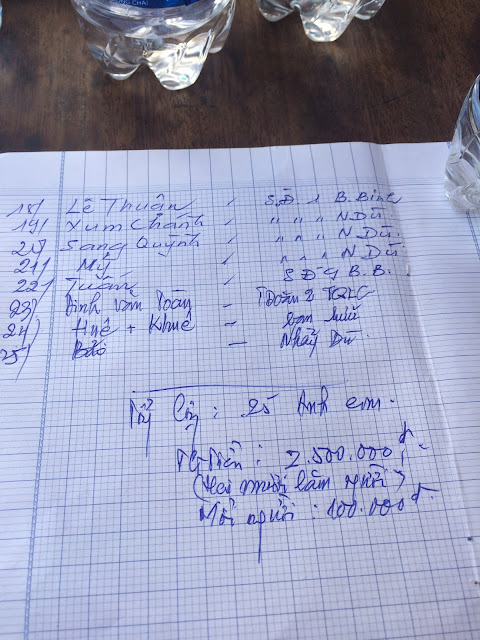 CHAI
18/ Lê Thuận , S.Đ. 1 B. Binh
19/ Xum Chánh , " " " N Dù
20/ Sang Quỳnh , " " " N Dù.
21/ Mỹ , " " " N Dù
22/ Tuấn , S Đ 9 B.B.
23/ Đinh văn Toàn - TĐoàn 2 TQLC
24/ Huê + Khuê - bạn hữu
25/ Bảo - Nhảy Dù.
Tổng Cộng : 25 Anh em.
Tg Tiền : 2.500.000đ.
(Hai mươi lăm người)
Mỗi người : 100.000đ